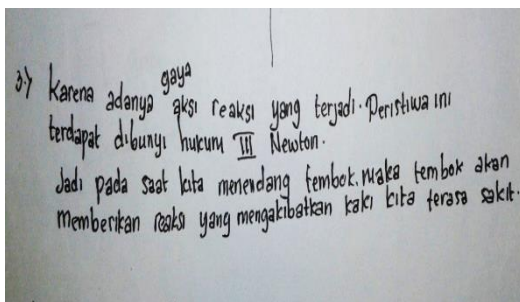 3.) Karena adanya gaya aksi reaksi yang terjadi. Peristiwa ini
terdapat dibunyi hukum III Newton.
Jadi pada saat kita menendang tembok, maka tembok akan
memberikan reaksi yang mengakibatkan kaki kita terasa sakit.